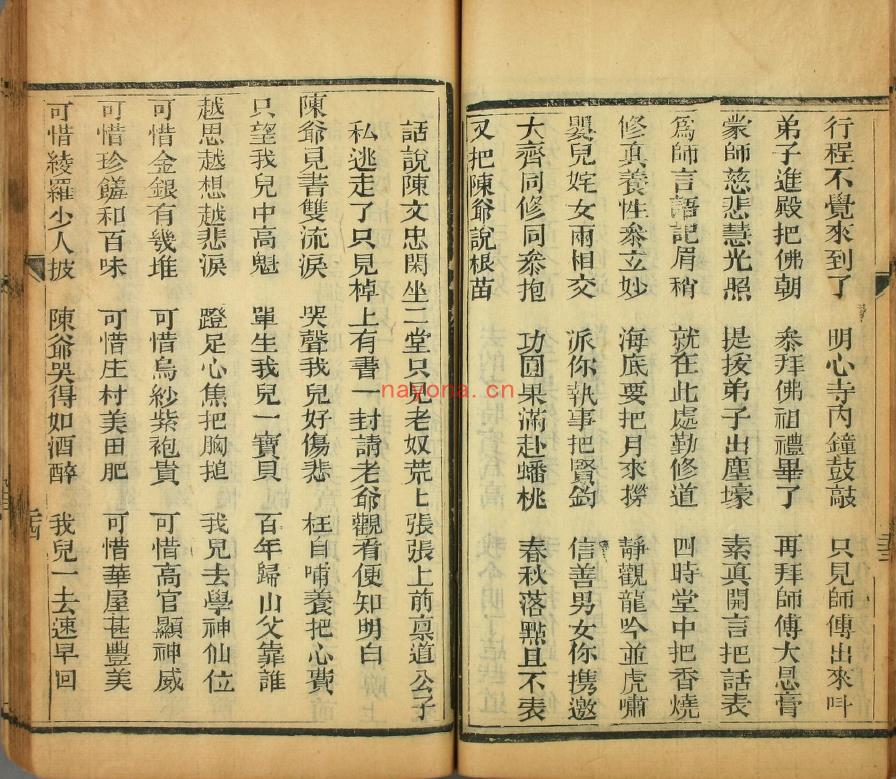 行程不覺來到了 明心寺內鐘鼓敲 只見師傅出來呌
弟子進殿把佛朝 叅拜佛祖禮畢了 再拜師傅大恩膏
蒙師慈悲慧光照 提拔弟子出塵壕 素真開言把話表
爲師言語記眉稍 就在此處勤修道 四時堂中把香燒
修真養性叅立妙 海底要把月來撈 靜觀龍吟並虎嘯
嬰兒姹女兩相交 派你執事把賢鈞 信善男女你携邀
大齊同修同叅抱 功圓果滿赴蟠桃 春秋落㸃且不表
又把陳爺說根苗
話說陳文忠閑坐二堂只見老奴荒上張張上前禀道公子
私逃走了只見棹上有書一封請老爺觀看便知明白
陳爺見書雙流淚 哭聲我兒好傷悲 枉自哺養把心費
只望我兒中高魁 單生我兒一寶貝 百年歸山父靠誰
越思越想越悲淚 蹬足心焦把胸搥 我兒去學神仙位
可惜金銀有幾堆 可惜烏紗紫袍貴 可惜高官顯神威
可惜珍饈和百味 可惜庄村美田肥 可惜華屋甚豐美
可惜綾羅少人披 陳爺哭得如酒醉 我兒一去速早回
nayona.cn